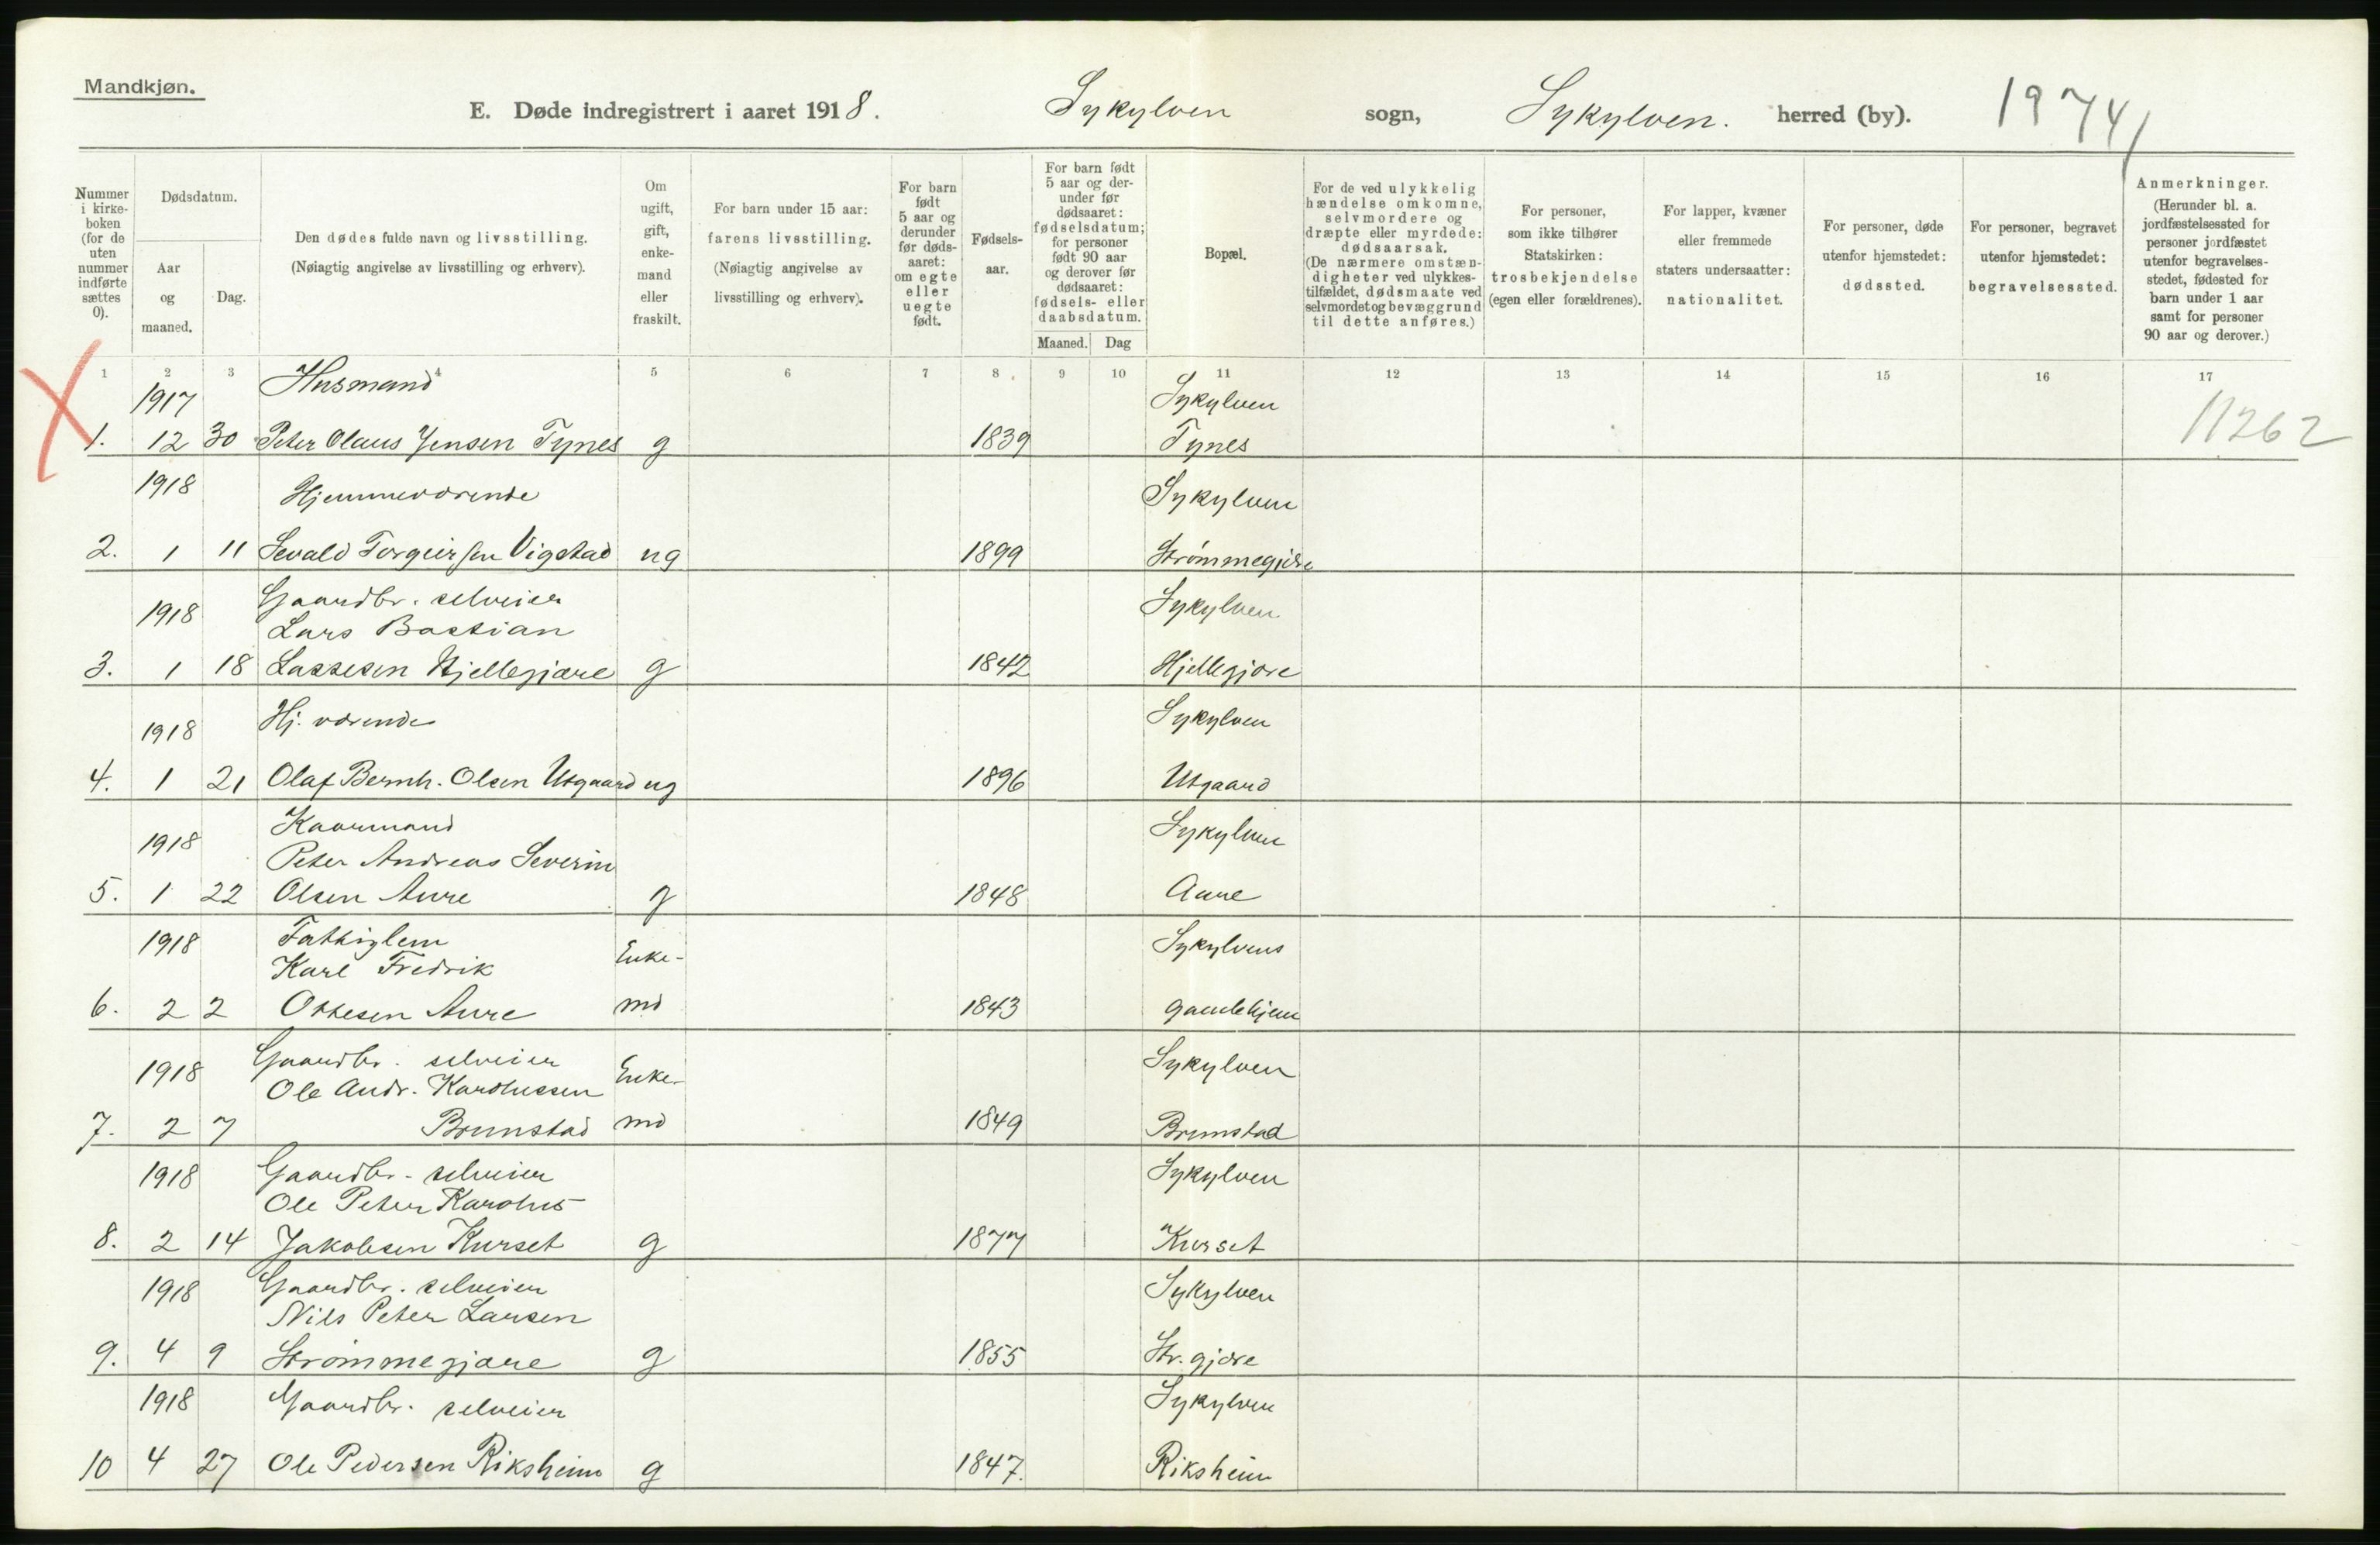 Mandkjøn.
E. Døde indregistrert i aaret 1918. Sykylven sogn, Sykylven. herred (by). 1974/
Nummer i kirke-boken (for de uten nummer indførte sættes 0).
Dødsdatum.
Aar og maaned.
Dag.
Den dødes fulde navn og livsstilling.
(Nøiagtig angivelse av livsstilling og erhverv).
Om ugift, gift, enke-mand eller fraskilt.
For barn under 15 aar: farens livsstilling.
(Nøiagtig angivelse av livsstilling og erhverv).
For barn født 5 aar og derunder før døds-aaret: om egte eller uegte født.
Fødsels-aar.
For barn født 5 aar og der-under før dødsaaret: fødselsdatum; for personer født 90 aar og derover før dødsaaret: fødsels- eller daabsdatum.
Maaned. Dag
Bopæl.
For de ved ulykkelig hændelse omkomne, selvmordere og dræpte eller myrdede: dødsaarsak.
(De nærmere omstæn-digheter ved ulykkes-tilfældet, dødsmaate ved selvmordet og bevæggrund til dette anføres.)
For personer, som ikke tilhører Statskirken: trosbekjendelse (egen eller forældrenes).
For lapper, kvæner eller fremmede staters undersaatter: nationalitet.
For personer, døde utenfor hjemstedet: dødssted.
For personer, begravet utenfor hjemstedet: begravelsessted.
Anmerkninger.
(Herunder bl. a. jordfæstelsessted for personer jordfæstet utenfor begravelses-stedet, fødested for barn under 1 aar samt for personer 90 aar og derover.)
1 2 3 4 5 6 7 8 9 10 11 12 13 14 15 16 17
1917 Husmand Sykylven
1. 12 30 Peter Olaus Jensen Tynes g 1839 Tynes 11262
1918 Hjemmeværende Sykylven
2. 1 11 Sevald Torgeirsen Vigstad ug 1899 Strømmegjære
1918 Gaardbr. selveier Sykylven
Lars Bastian
3. 1 18 Lassesen Hjellegjære g 1842 Hjellegjære
1918 Hj. værende Sykylven
4. 1 21 Olaf Bernh. Olsen Utgaard ug 1896 Utgaard
1918 Kaarmand Sykylven
Peter Andreas Severin
5. 1 22 Olsen Aure g 1848 Aure
1918 Fattiglem Enke- Sykylvens
Karl Fredrik
6. 2 2 Ottesen Aure md 1843 gamlehjem
1918 Gaardbr. selveier Enke- Sykylven
Ole Andr. Karolussen
7. 2 7 Brunstad md 1849 Brunstad
1918 Gaardbr. selveier Sykylven
Ole Peter Karolus
8. 2 14 Jakobsen Kurset g 1877 Kurset
1918 Gaardbr. selveier Sykylven
Nils Peter Larsen
9. 4 9 Strømmegjære g 1855 Str.gjære
1918 Gaardbr. selveier Sykylven
10 4 27 Ole Pedersen Riksheim g 1847. Riksheim